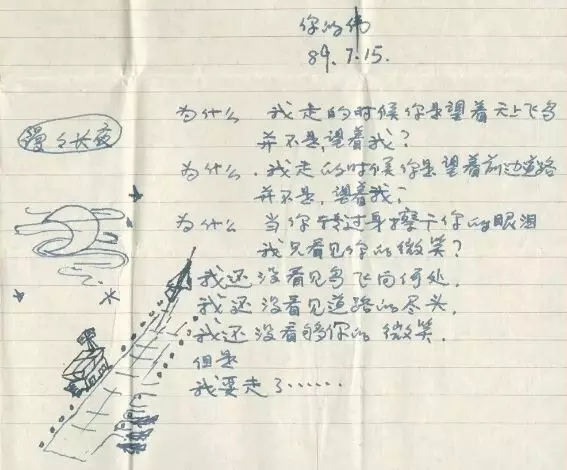 你的伟
89.7.15.
漫々长夜
为什么 我走的时候你是望着天上飞鸟
并不是,望着我?
为什么.我走的时候你是望着前边道路
并不是,望着我?
为什么 当你转过身擦干你的眼泪
我只看见你的微笑?
我还没看见鸟飞向何处.
我还没看见道路的尽头.
我还没看够你的微笑.
但是
我要走了······